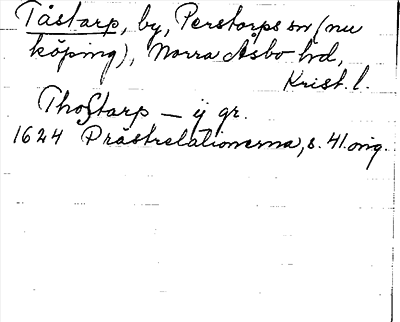 Tåstarp, by, Perstorps sn (nu
köping), Norra Åsbo hd,
Krist. l.
Thostarp — ij gr.
1624 Prästrelationerna, s. 41. orig.